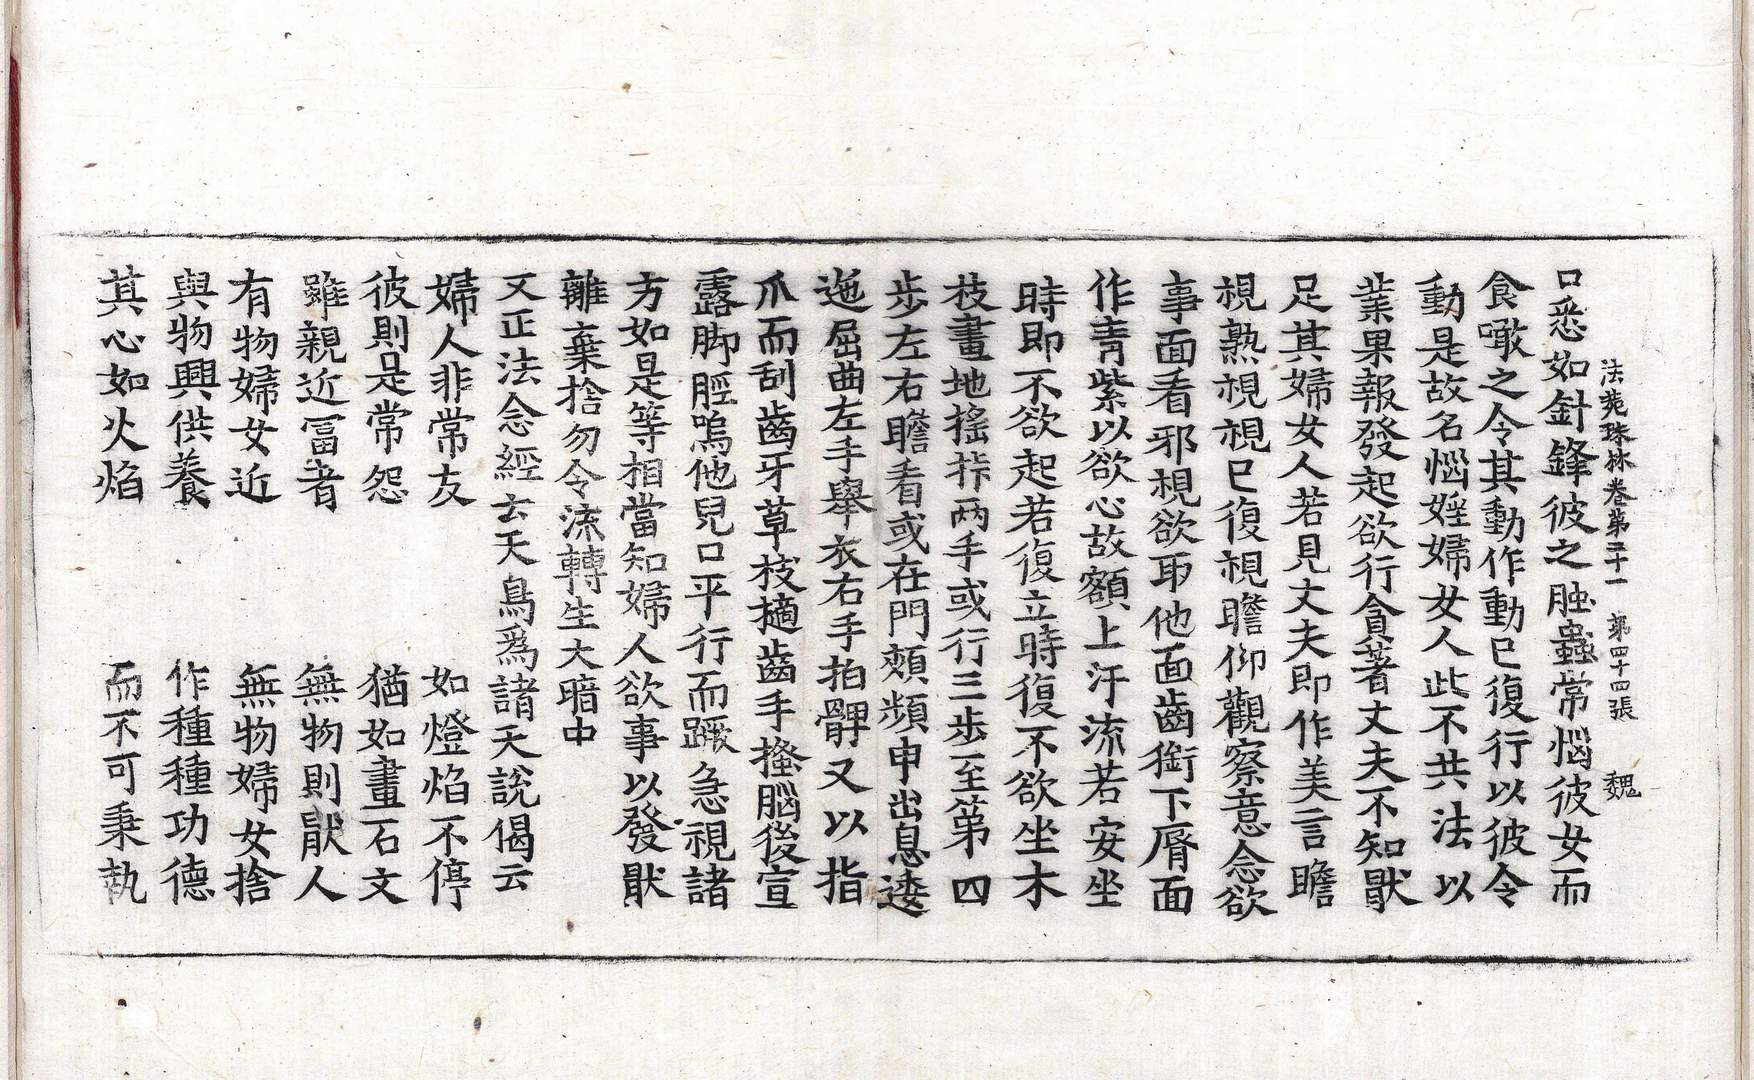 法苑珠林卷第二十一　第四十四張　魏
口悉如針鋒彼之䖝蟲常惱彼女而
食噉之令其動作動已復行以彼令
動是故名惱婬婦女人此不共法以
業果報發起欲行貪著丈夫不知猒
足其婦女人若見丈夫即作美言瞻
視熟視視已復視瞻仰觀察意念欲
事面看邪視欲取他面齒銜下脣面
作青紫以欲心故額上汗流若安坐
時即不欲起若復立時復不欲坐木
枝畫地搖㧊兩手或行三步至第四
步左右瞻看或在門頰頻申出息逶
迤屈曲左手舉衣右手拍髀又以指
爪而刮齒牙草枝擿齒手搔腦後宣
露脚脛嗚他兒口平行而蹶急視諸
方如是等相當知婦人欲事以發猒
離棄捨勿令流轉生大暗中
又正法念經云天鳥為諸天說偈云
婦人非常友　如燈焰不停
彼則是常怨　猶如畫石文
雖親近冨者　無物則猒人
有物婦女近　無物婦女捨
與物興供養　作種種功德
其心如火焰　而不可秉執